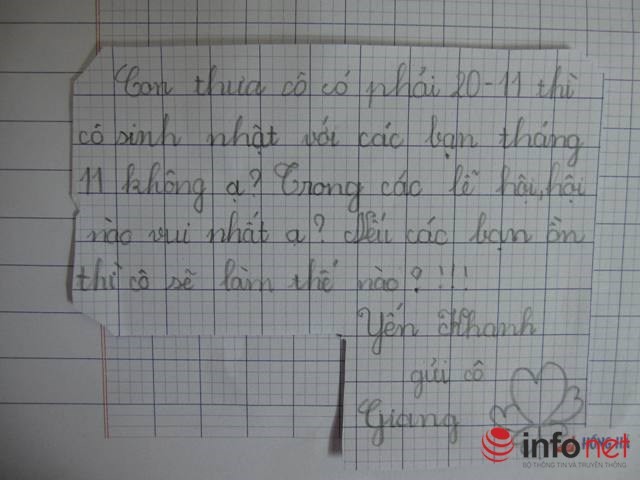 Con thưa cô có phải 20-11 thì
cô sinh nhật với các bạn tháng
11 không ạ? Trong các lễ hội, hội
nào vui nhất ạ? Nếu các bạn ồn
thì cô sẽ làm thế nào?!!!
Yến Khanh
gửi cô
Giang
HỒNG HÀ
infonet
BỘ THÔNG TIN VÀ TRUYỀN THÔNG